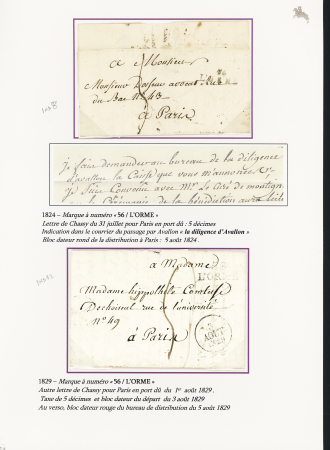 a Monsieur
Monsieur
du Bac N° 43
à Paris
je fais demander au bureau de la diligence
d'avallon la Caisse que vous m'annoncés
je suis Convenu avec Mr. Le Curé de
1824 – Marque à numéro « 56 / L'ORME »
Lettre de Chassy du 31 juillet pour Paris en port dû : 5 décimes
Indication dans le courrier du passage par Avallon « la diligence d'Avallon »
Bloc dateur rond de la distribution à Paris : 5 août 1824.
à Madame
L'ORME
Madame hippolite Comtesse
Dechoiseul rue de l'université
N° 49
à Paris
AOUT
1829
1829 – Marque à numéro « 56 / L'ORME »
Autre lettre de Chassy pour Paris en port dû du 1er août 1829.
Taxe de 5 décimes et bloc dateur du départ du 3 août 1829
Au verso, bloc dateur rouge du bureau de distribution du 5 août 1829